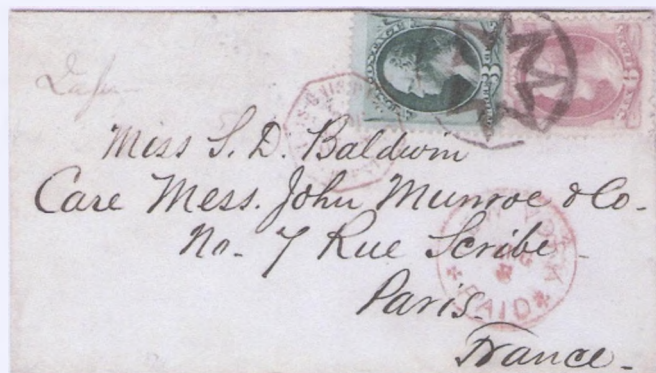 Miss S. D. Baldwin
Care Mess. John Munroe & Co.
No. 7 Rue Scribe
Paris
France.
NEW YORK
PAID